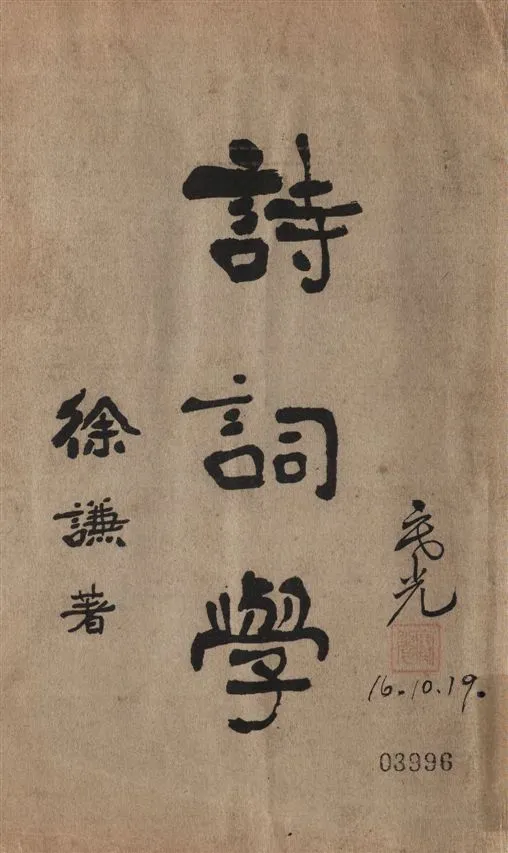 詩詞學
徐謙著
16.10.19.
03996